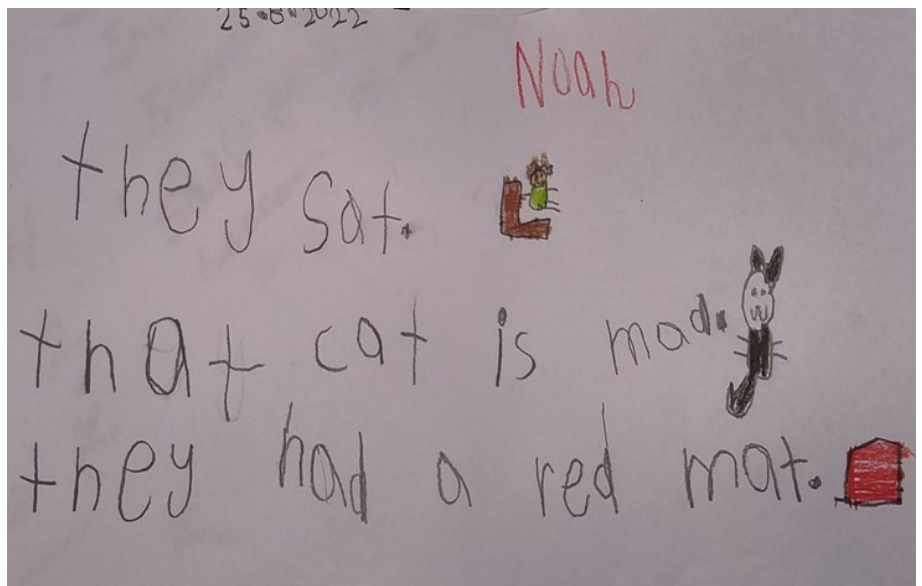 25.8.2022
Noah
they sat.
that cat is mad.
they had a red mat.